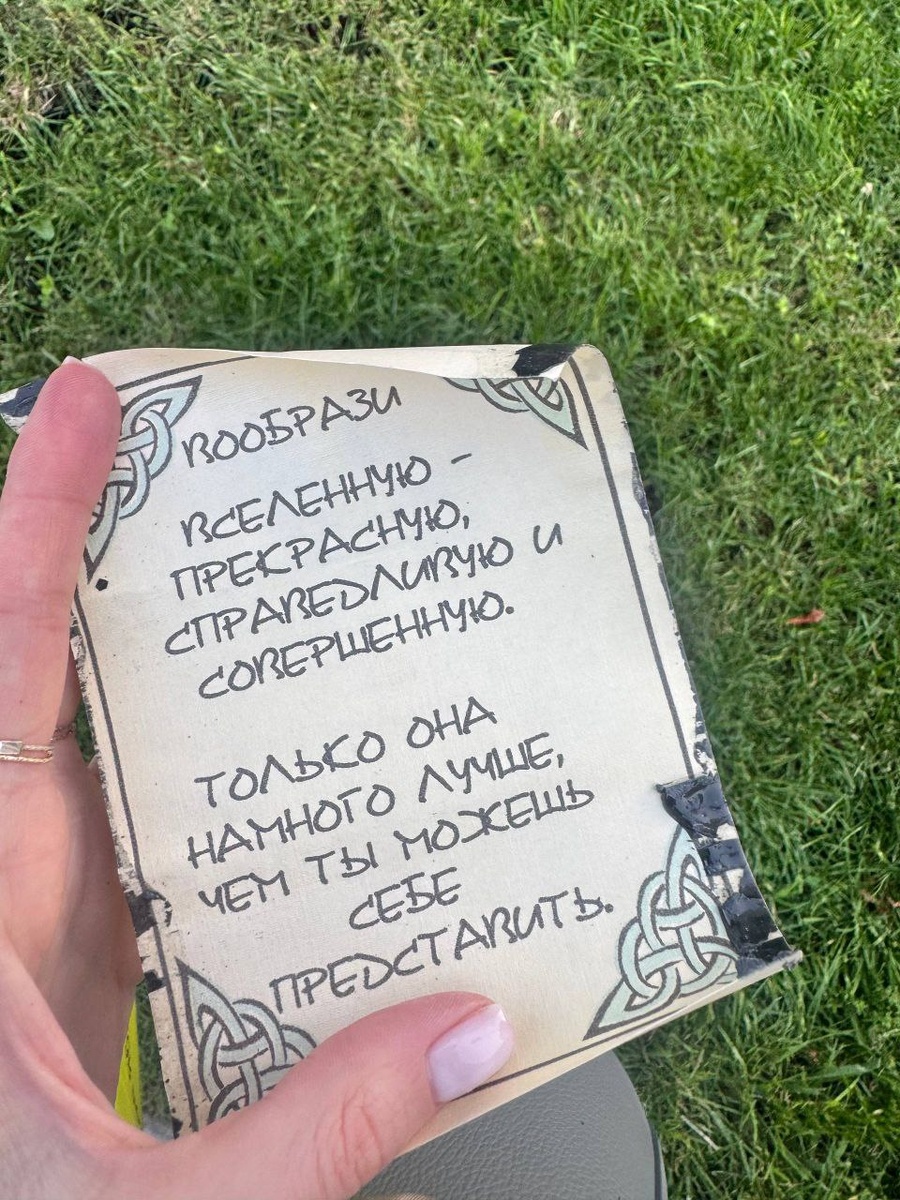 ВООБРАЗИ
ВСЕЛЕННУЮ –
ПРЕКРАСНУЮ,
СПРАВЕДЛИВУЮ И
СОВЕРШЕННУЮ.
ТОЛЬКО ОНА
НАМНОГО ЛУЧШЕ,
ЧЕМ ТЫ МОЖЕШЬ
СЕБЕ
ПРЕДСТАВИТЬ.